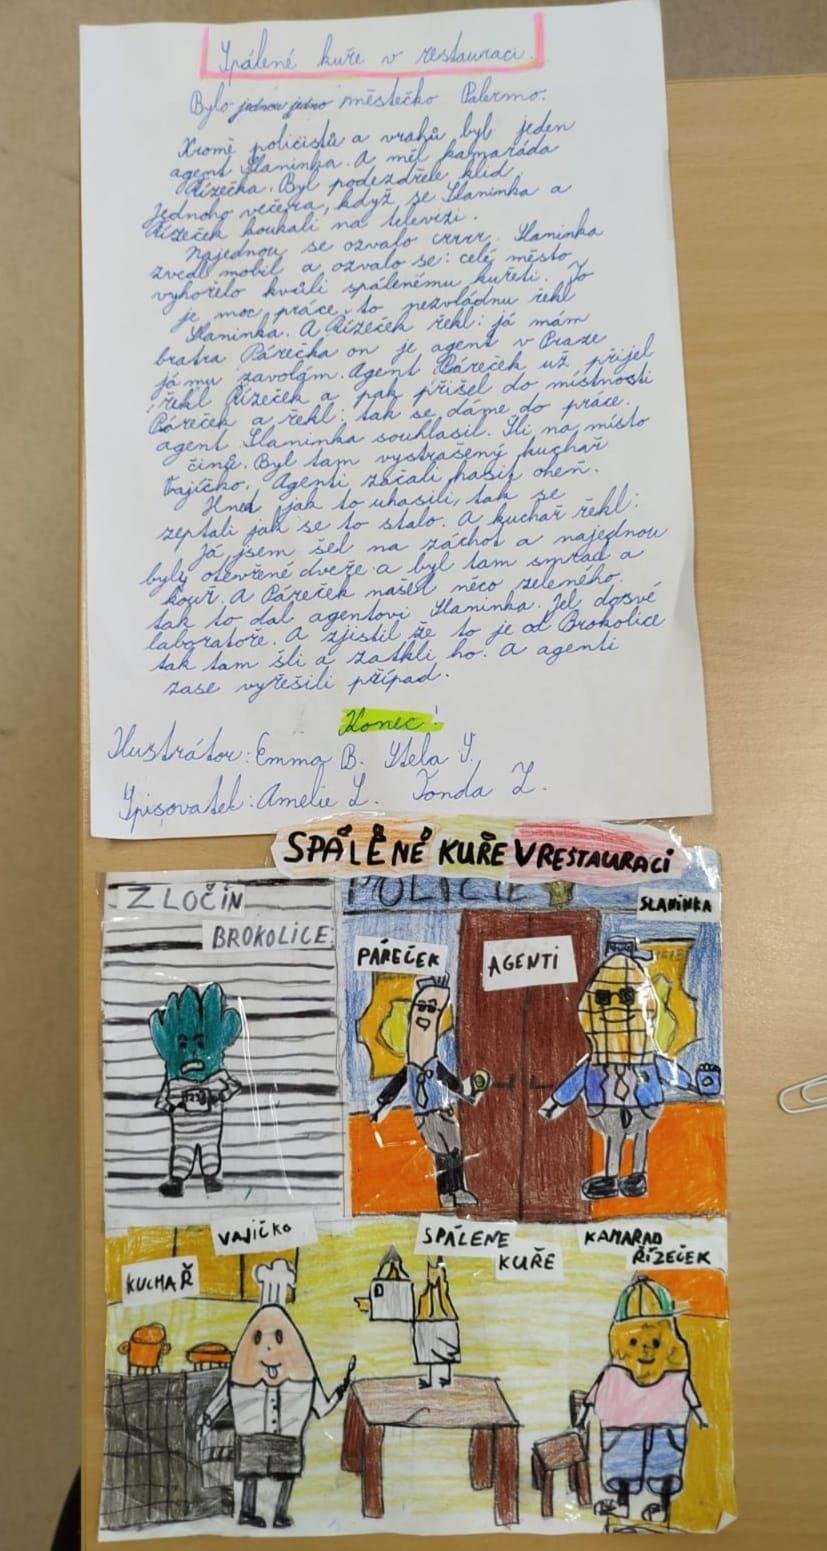 Spálené kuře v restauraci.
Bylo jednou jedno městečko Palermo.
Kromě policistů a vrahů byl jeden
agent Slaninka. A měl kamaráda
Řízečka. Byl podezdřele klid.
Jednoho večera, když se Slaninka a
Řízeček koukali na televizi.
Najednou se ozvalo crrrr. Slaninka
zvedl mobil a ozvalo se: celé město
vyhořelo kvůli spálenému kuřeti. To
je moc práce, to nezvládnu řekl
Slaninka. A Řízeček řekl: já mám
bratra Párečka on je agent v Praze
já mu zavolám. Agent Páreček už přijel
řekl Řízeček a pak přišel do místnosti
Páreček a řekl: tak se dáme do práce.
agent Slaninka souhlasil. Šli na místo
činů. Byl tam vystrašený kuchař
Vajíčko. Agenti začali hasit oheň.
Hned jak to uhasili, tak se
zeptali jak se to stalo. A kuchař řekl:
Já jsem šel na záchot a najednou
byly otevřené dveře a byl tam smrad a
kouř. A Páreček našel něco zeleného.
tak to dal agentovi Slaninka. Jel do své
laboratoře. A zjistil že to je od Brokolice
tak tam šli a zatkli ho. A agenti
zase vyřešili případ.
Konec!
Ilustrátor: Emma B. Stela Y.
Spisovatel: Amelie L. Tonda Z.
SPÁLENÉ KUŘE V RESTAURACI
ZLOČIN
BROKOLICE
POLICIE
SLANINKA
PÁREČEK
AGENTI
VAJÍČKO
KUCHAŘ
SPÁLENE
KUŘE
KAMARAD
ŘÍZEČEK